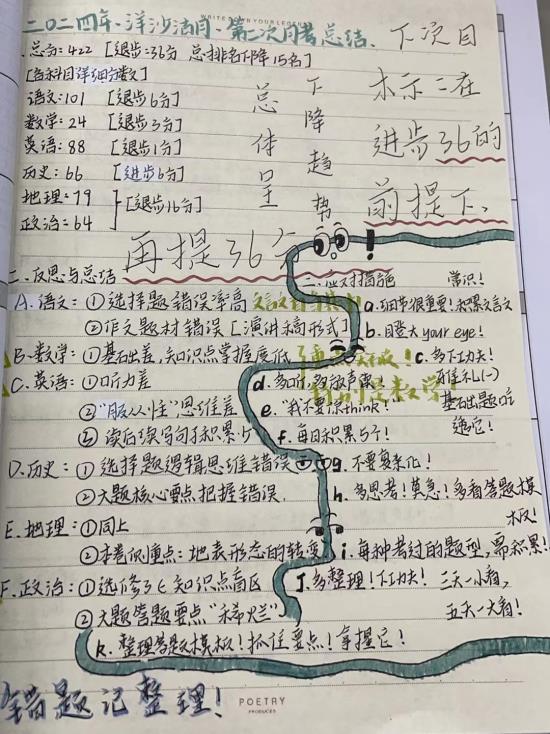 WRITE DOWN YOUR LEGEND
二〇二四年、洋沙洁月、第二次月考总结、
一、总分：422 [退步：36分 总排名下降15名]
[各科目详细分数]
语文：101 [退步6分]
数学：24 [退步3分]
英语：88 [退步1分]
历史：66 [进步6分]
地理：79
政治：64
[退步16分]
总体呈
下降趋势
下次目
标示：在
进步36的
前提下、
再提36分
！
二、反思与总结
A、语文：①选择题错误率高
②作文题材错误 [演讲稿形式]
B、数学：①基础差，知识点掌握度低
C、英语：①听力差
②“服从性”思维差
③读后续写句子积累少
D、历史：①选择题逻辑思维错误
②大题核心要点把握错误
E、地理：①同上
②本卷侧重点：地表形态的转变
F、政治：①选修3七知识点盲区
②大题答题要点“稀烂”
三、应对措施
a、细节很重要！积累文言文常识！
b、瞪大your eye！
c、多下功夫！
基础题吃透它！
d、多听，多放声读！
e、“我不要你think！”
f、每日积累5个！
g、不要复杂化！
h、多思考！莫急！多看答题模板！
i、每种考过的题型，需积累！
J、多整理！下功夫！三天一小看，五天一大看！
k、整理答题模板！抓住要点！掌握它！
错题记整理！
POETRY
PRODUCES